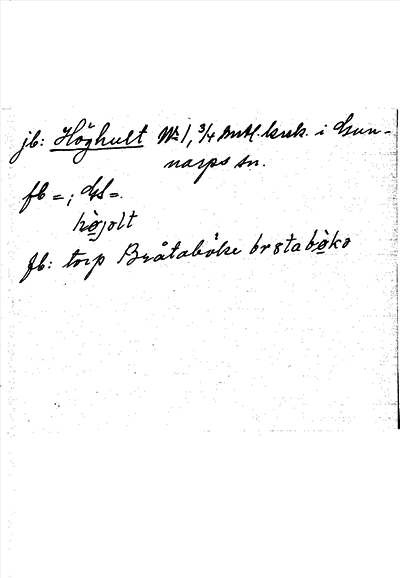 jb: Höghult No 1, 3/4 mtl. krsk. i Gun-
narps sn.
fb =; GS =.
hö̀golt
fb: torp Bråtaböke brstabö̀ko